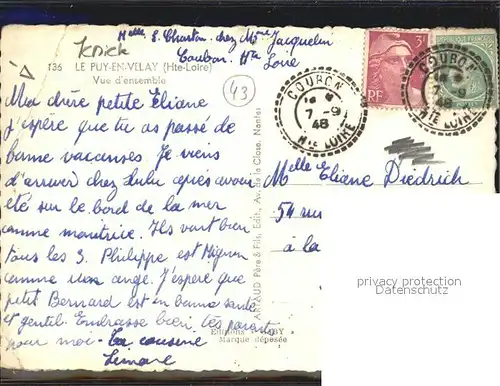 Knick
Melle S. Charton chez Mme Jacquelin
Coubon. Hte
Loire
136 LE PUY-EN-VELAY (Hte-Loire)
Vue d'ensemble
43
Ma chère petite Eliane
J'espère que tu as passé de
bonne vacances. Je viens
d'arriver chez Lulu après avoir
été sur le bord de la mer
comme monitrice. Ils vont bien
tous les 3. Philippe est mignon
comme un ange. J'espère que
petit Bernard est en bonne santé
et gentil. Embrasse bien tes parents
pour moi - ta cousine
Simone
ARTAUD Père & Fils, Edit., Av. de la Close, Nantes
Editions GABY
Marque déposée
3F
RF
COUBON
7-9
48
HTE LOIRE
COUBON
7
48
HTE LOIRE
Melle Eliane Diedrich
54 rue
à la
privacy protection
Datenschutz